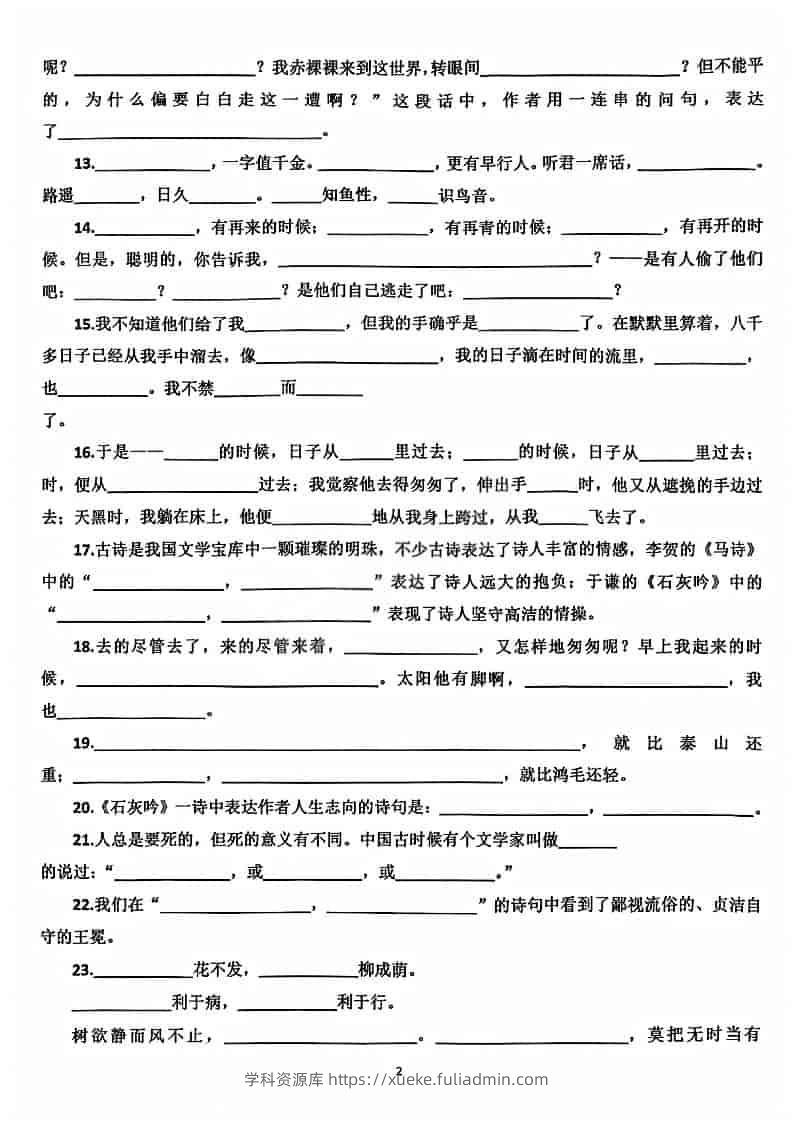 呢？____________________？我赤裸裸来到这世界，转眼间____________________？但不能平
的，为什么偏要白白走这一遭啊？”这段话中，作者用一连串的问句，表达
了____________________。
13.____________，一字值千金。____________，更有早行人。听君一席话，____________。
路遥_______，日久_______。_____知鱼性，_____识鸟音。
14.__________，有再来的时候；__________，有再青的时候；__________，有再开的时
候。但是，聪明的，你告诉我，______________________________？——是有人偷了他们
吧：________？__________？是他们自己逃走了吧：______________？
15.我不知道他们给了我__________，但我的手确乎是__________了。在默默里算着，八千
多日子已经从我手中溜去，像__________________，我的日子滴在时间的流里，_________，
也_________。我不禁_______而_______
了。
16.于是——______的时候，日子从______里过去；______的时候，日子从______里过去；
时，便从________________过去；我觉察他去得匆匆了，伸出手_____时，他又从遮挽的手边过
去；天黑时，我躺在床上，他便__________地从我身上跨过，从我_____飞去了。
17.古诗是我国文学宝库中一颗璀璨的明珠，不少古诗表达了诗人丰富的情感，李贺的《马诗》
中的“______________，______________”表达了诗人远大的抱负；于谦的《石灰吟》中的
“________________，________________”表现了诗人坚守高洁的情操。
18.去的尽管去了，来的尽管来着，______________，又怎样地匆匆呢？早上我起来的时
候，______________________________。太阳他有脚啊，____________________，我
也________________。
19.________________________________________________，就比泰山还
重；______________，____________________________，就比鸿毛还轻。
20.《石灰吟》一诗中表达作者人生志向的诗句是：________________，________________。
21.人总是要死的，但死的意义有不同。中国古时候有个文学家叫做______
的说过：“____________，或__________，或__________。”
22.我们在“________________，________________”的诗句中看到了鄙视流俗的、贞洁自
守的王冕。
23.__________花不发，__________柳成荫。
__________利于病，__________利于行。
树欲静而风不止，____________________。____________________，莫把无时当有
2
学科资源库 https://xueke.fuliadmin.com/